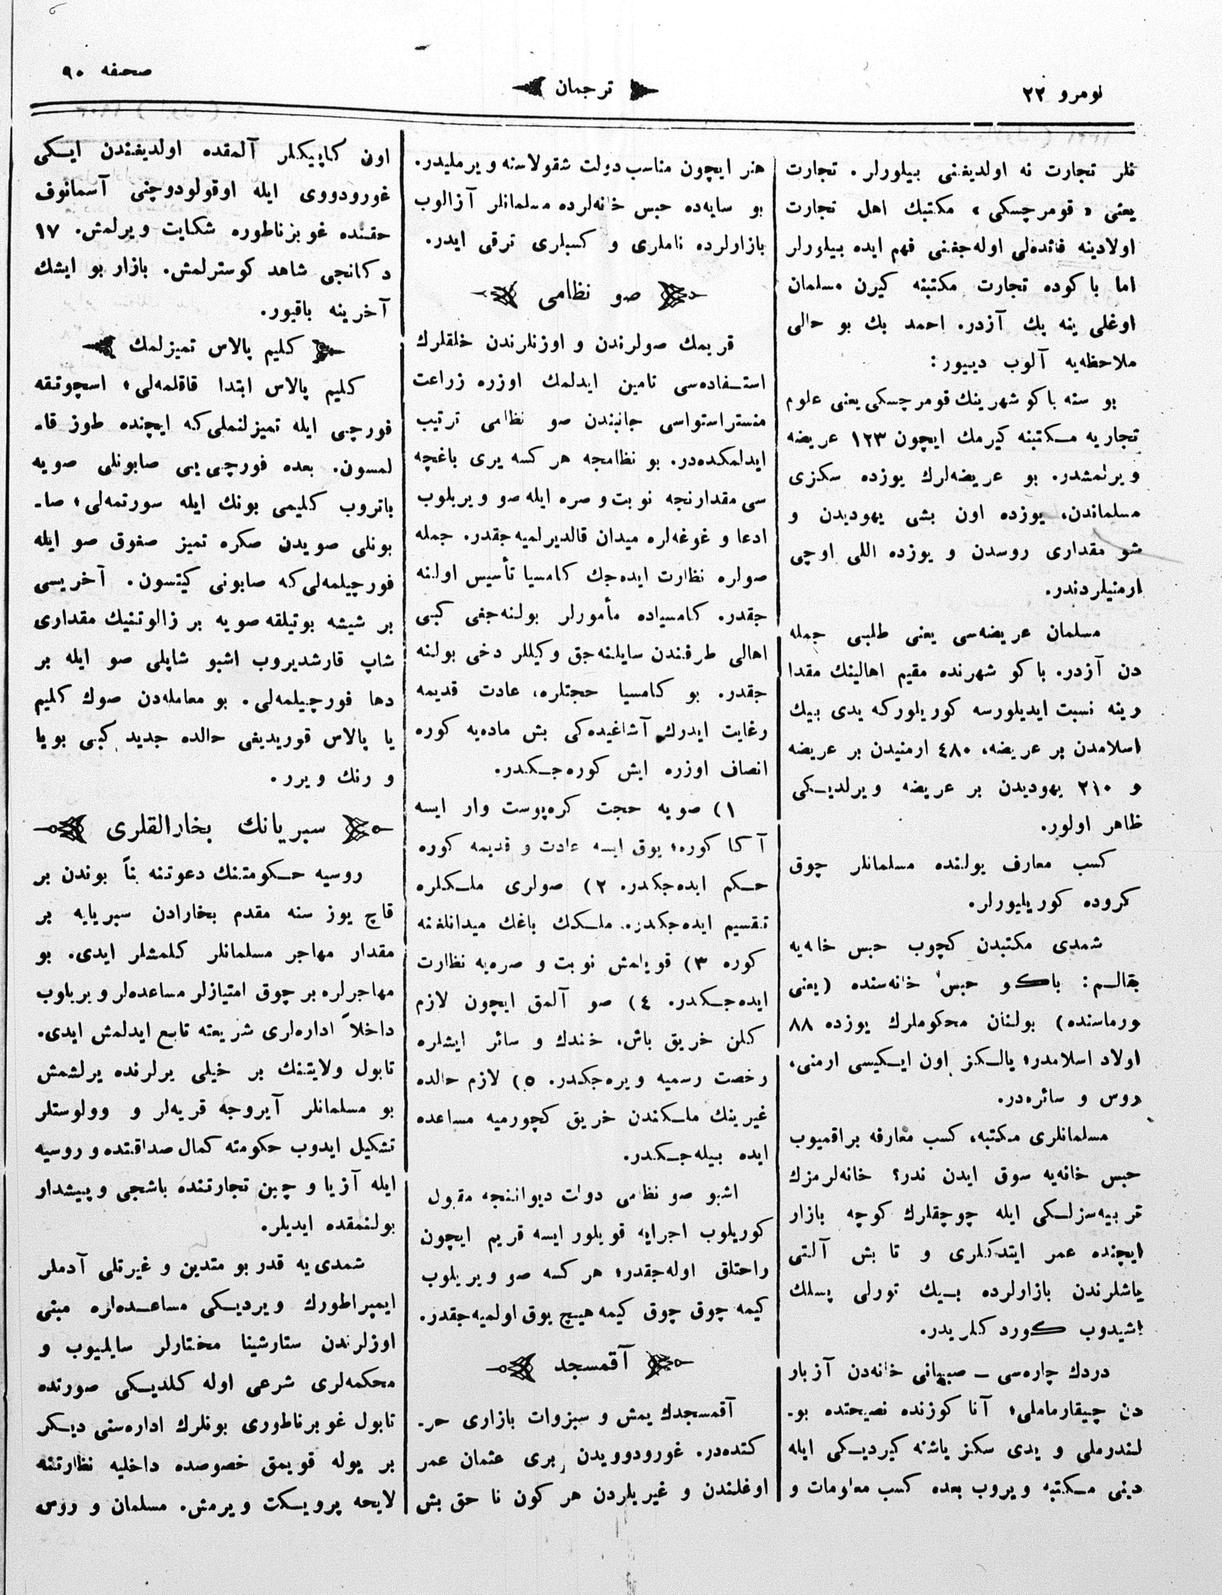 نومرو ٢٢
ترجمان
صحیفه ٩٠
نلر تجارت نه اولدیغنی بیلورلر. تجارت
یعنی «قومرچسکی» مکتبك اهل تجارت
اولادینه فائده‌لی اوله‌جغنی فهم ایده بیلورلر
اما باکوده تجارت مکتبنه کیرن مسلمان
اوغلی ینه بك آزدر. احمد بك بو حالی
ملاحظه‌یه آلوب دییور:
بو سنه باکو شهرینك قومرچسکی یعنی علوم
تجاریه مکتبنه کیرمك ایچون ١٢٣ عریضه
ویرلمشدر. بو عریضه‌لرك یوزده سکزی
مسلماندن، یوزده اون بشی یهودیدن و
شو مقداری روسدن و یوزده اللی اوچی
ارمنیلردندر.
مسلمان عریضه‌سی یعنی طلبی جمله
دن آزدر. باکو شهرنده مقیم اهالینك مقدا
رینه نسبت ایدیلورسه کوریلورکه یدی بیك
اسلامدن بر عریضه، ٤٨٠ ارمنیدن بر عریضه
و ٢١٠ یهودیدن بر عریضه ویرلدیکی
ظاهر اولور.
کسب معارف یولنده مسلمانلر چوق
کروده کوریلیورلر.
شمدی مکتبدن کچوب حبس خانه‌یه
بقالم: باکو حبس خانه‌سنده (یعنی
ورماسنده) بولنان محکوملرك یوزده ٨٨
اولاد اسلامدر؛ یالکز اون ایکیسی ارمنی،
روس و سائره‌در.
مسلمانلری مکتبه، کسب معارفه براقمیوب
حبس خانه‌یه سوق ایدن ندر؟ خانه‌لرمزك
تربیه‌سزلکی ایله چوچقلرك کوچه بازار
ایچنده عمر ایتدکلری و تا بش آلتی
یاشلرندن بازارلرده بیك تورلی پسلك
اشیدوب کوردکلریدر.
دردك چاره‌سی ـ صبیانی خانه‌دن آز بار
دن چیقارماملی؛ آنا کوزنده نصیحتده بو۔
لندرملی و یدی سکز یاشنه کیردیکی ایله
دینی مکتبه ویروب بعده کسب معلومات و
هنر ایچون مناسب دولت شقولاسنه ویرملیدر.
بو سایه‌ده حبس خانه‌لرده مسلمانلر آزالوب
بازارلرده ناملری و کسبلری ترقی ایدر.
صو نظامی
قریمك صولرندن و اوزنلرندن خلقلرك
استفاده‌سی تامین ایدلمك اوزره زراعت
منسترستواسی جانبندن صو نظامی ترتیب
ایدلمکده‌در. بو نظامجه هر کسه یری باغچه
سی مقدارنجه نوبت و صره ایله صو ویریلوب
ادعا و غوغه‌لره میدان قالدیرلمیه‌جقدر. جمله
صولره نظارت ایده‌جك کامسیا تأسیس اولنه
جقدر. کامسیاده مأمورلر بولنه‌جغی کبی
اهالی طرفندن سایلنه‌جق وکیللر دخی بولنه
جقدر. بو کامسیا حجتلره، عادت قدیمه
رغایت ایدرك آشاغیده‌کی بش ماده‌یه کوره
انصاف اوزره ایش کوره‌جکدر.
١) صویه حجت کره‌پوست وار ایسه
آکا کوره؛ یوق ایسه عادت و قدیمه کوره
حکم ایده‌جکدر. ٢) صولری ملکلره
تقسیم ایده‌جکدر. ملکك باغك میدانلغنه
کوره ٣) قویلمش نوبت و صره‌یه نظارت
ایده‌جکدر. ٤) صو آلمق ایچون لازم
کلن خریق باش، خندك و سائر ایشلره
رخصت رسمیه ویره‌جکدر. ٥) لازم حالده
غیرینك ملکندن خریق کچورمیه مساعده
ایده بیله‌جکدر.
اشبو صو نظامی دولت دیوانندجه مقبول
کوریلوب اجرایه قویلور ایسه قریم ایچون
راحتلق اوله‌جقدر؛ هر کسه صو ویریلوب
کیمه چوق چوق کیمه هیچ یوق اولمیه‌جقدر.
آقمسجد
آقمسجدك یمش و سبزوات بازاری حر۔
کتده‌در. غورودوویدن بری عثمان عمر
اوغلندن و غیریلردن هر کون نا حق بش
اون کاپیکلر آلمقده اولدیغندن ایکی
غورودووی ایله اوقولودوچنی آسمانوف
حقنده غوبرناطوره شکایت ویرلمش. ١٧
دکانجی شاهد کوسترلمش. بازار بو ایشك
آخرینه باقیور.
کلیم پالاس تمیزلمك
کلیم پالاس ابتدا قاقلمه‌لی؛ اسچوتقه
فورچی ایله تمیزلنملی‌که ایچنده طوز قا۔
لمسون. بعده فورچی‌یی صابونلی صویه
باتروب کلیمی بونك ایله سورتمه‌لی؛ صا۔
بونلی صویدن صکره تمیز صغوق صو ایله
فورچیلمه‌لی‌که صابونی کیتسون. آخریسی
بر شیشه بوتیلقه صویه بر زالوتنیك مقداری
شاپ قارشدیروب اشبو شاپلی صو ایله بر
دها فورچیلمه‌لی. بو معامله‌دن صوك کلیم
یا پالاس قوریدیغی حالده جدید کبی بویا
و رنك ویرر.
سبریانك بخارالقلری
روسیه حکومتنك دعوتنه بناً بوندن بر
قاچ یوز سنه مقدم بخارادن سبریایه بر
مقدار مهاجر مسلمانلر کلمشلر ایدی. بو
مهاجرلره بر چوق امتیازلر مساعده‌لر ویریلوب
داخلاً اداره‌لری شریعته تابع ایدلمش ایدی.
تابول ولایتنك بر خیلی یرلرنده یرلشمش
بو مسلمانلر آیروجه قریه‌لر و وولوستلر
تشکیل ایدوب حکومته کمال صداقتده و روسیه
ایله آزیا و چین تجارتنده باشجی و پیشدار
بولنمقده ایدیلر.
شمدی یه قدر بو متدین و غیرتلی آدملر
ایمپراطورك ویردیکی مساعده‌لره مبنی
اوزلرندن ستارشینا مختارلر سایلیوب و
محکمه‌لری شرعی اوله کلدیکی صورتده
تابول غوبرناطوری بونلرك اداره‌سنی دیکر
بر یوله قویمق خصوصده داخلیه نظارتنه
لایحه پرویکت ویرمش. مسلمان و روس